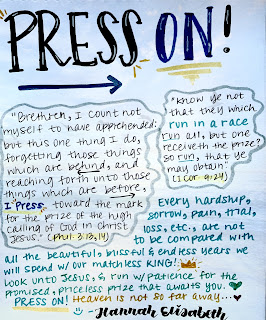 PRESS ON!
"Brethren, I count not
myself to have apprehended:
but this one thing I do,
forgetting those things
which are behind, and
reaching forth unto those
things which are before,
I Press toward the mark
for the prize of the high
calling of God in Christ
Jesus." (Phil. 3:13,14)
"Know ye not
that they which
run in a race
run all, but one
receiveth the prize?
So run, that ye
may obtain."
(1 Cor. 9:24)
Every hardship,
sorrow, pain, trial,
loss, etc., are not
to be compared with
all the beautiful, blissful & endless years we
will spend w/ our matchless KING!
Look unto Jesus, & run w/ patience for the
promised, priceless prize that awaits you.
PRESS ON! Heaven is not so far away...
- Hannah Elisabeth